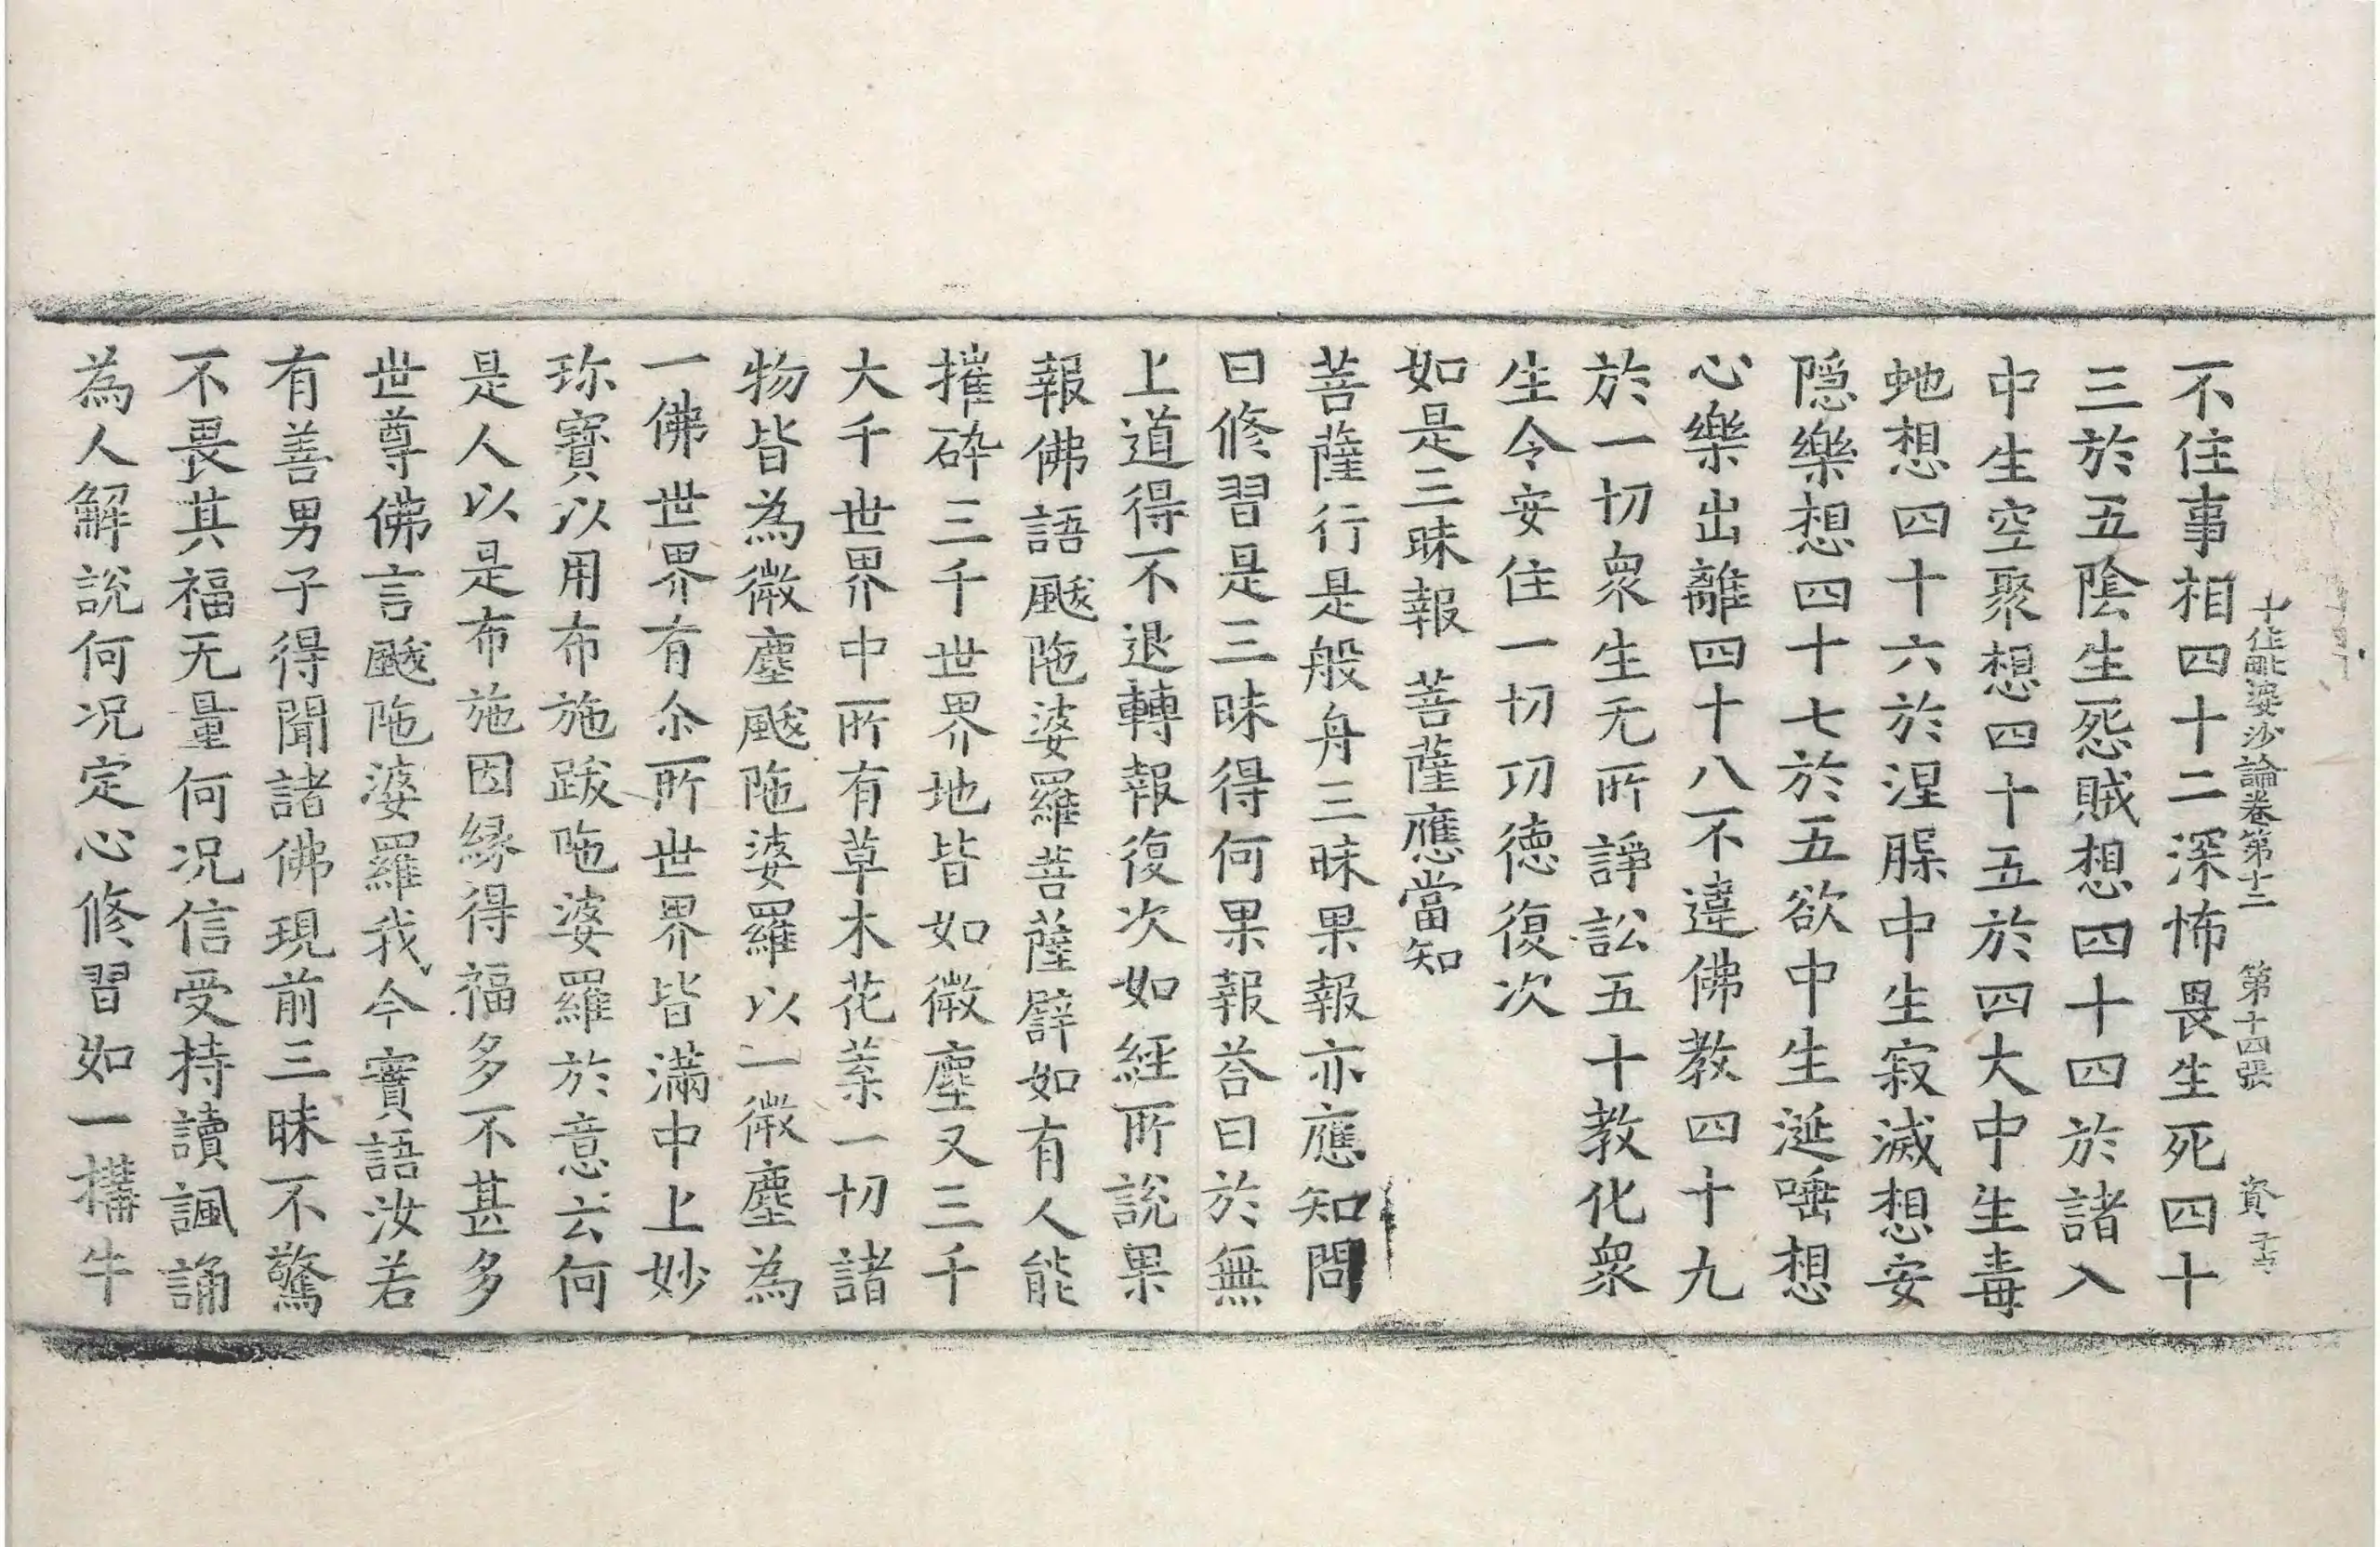 十住毗婆沙論卷第十二 第十四張 資
不住事相四十二深怖畏生死四十
三於五陰生惌賊想四十四於諸入
中生空聚想四十五於四大中生毒
虵想四十六於涅槃中生寂滅想安
隐樂想四十七於五欲中生涎唾想
心樂出離四十八不違佛教四十九
於一切衆生无所諍訟五十教化衆
生令安住一切功徳復次
如是三昧報 菩薩應當知
菩薩行是般舟三昧果報亦應知問
曰修習是三昧得何果報荅曰於無
上道得不退轉報復次如經所說果
報佛語颰陁婆羅菩薩譬如有人能
摧碎三千世界地皆如微塵又三千
大千世界中所有草木花葉一切諸
物皆為微塵颰陁婆羅以一微塵為
一佛世界有尒所世界皆滿中上妙
珎寳以用布施跋陁婆羅於意云何
是人以是布施因縁得福多不甚多
世尊佛言颰陁婆羅我今實語汝若
有善男子得聞諸佛現前三昧不驚
不畏其福无量何况信受持讀諷誦
為人解說何况定心修習如一搆牛